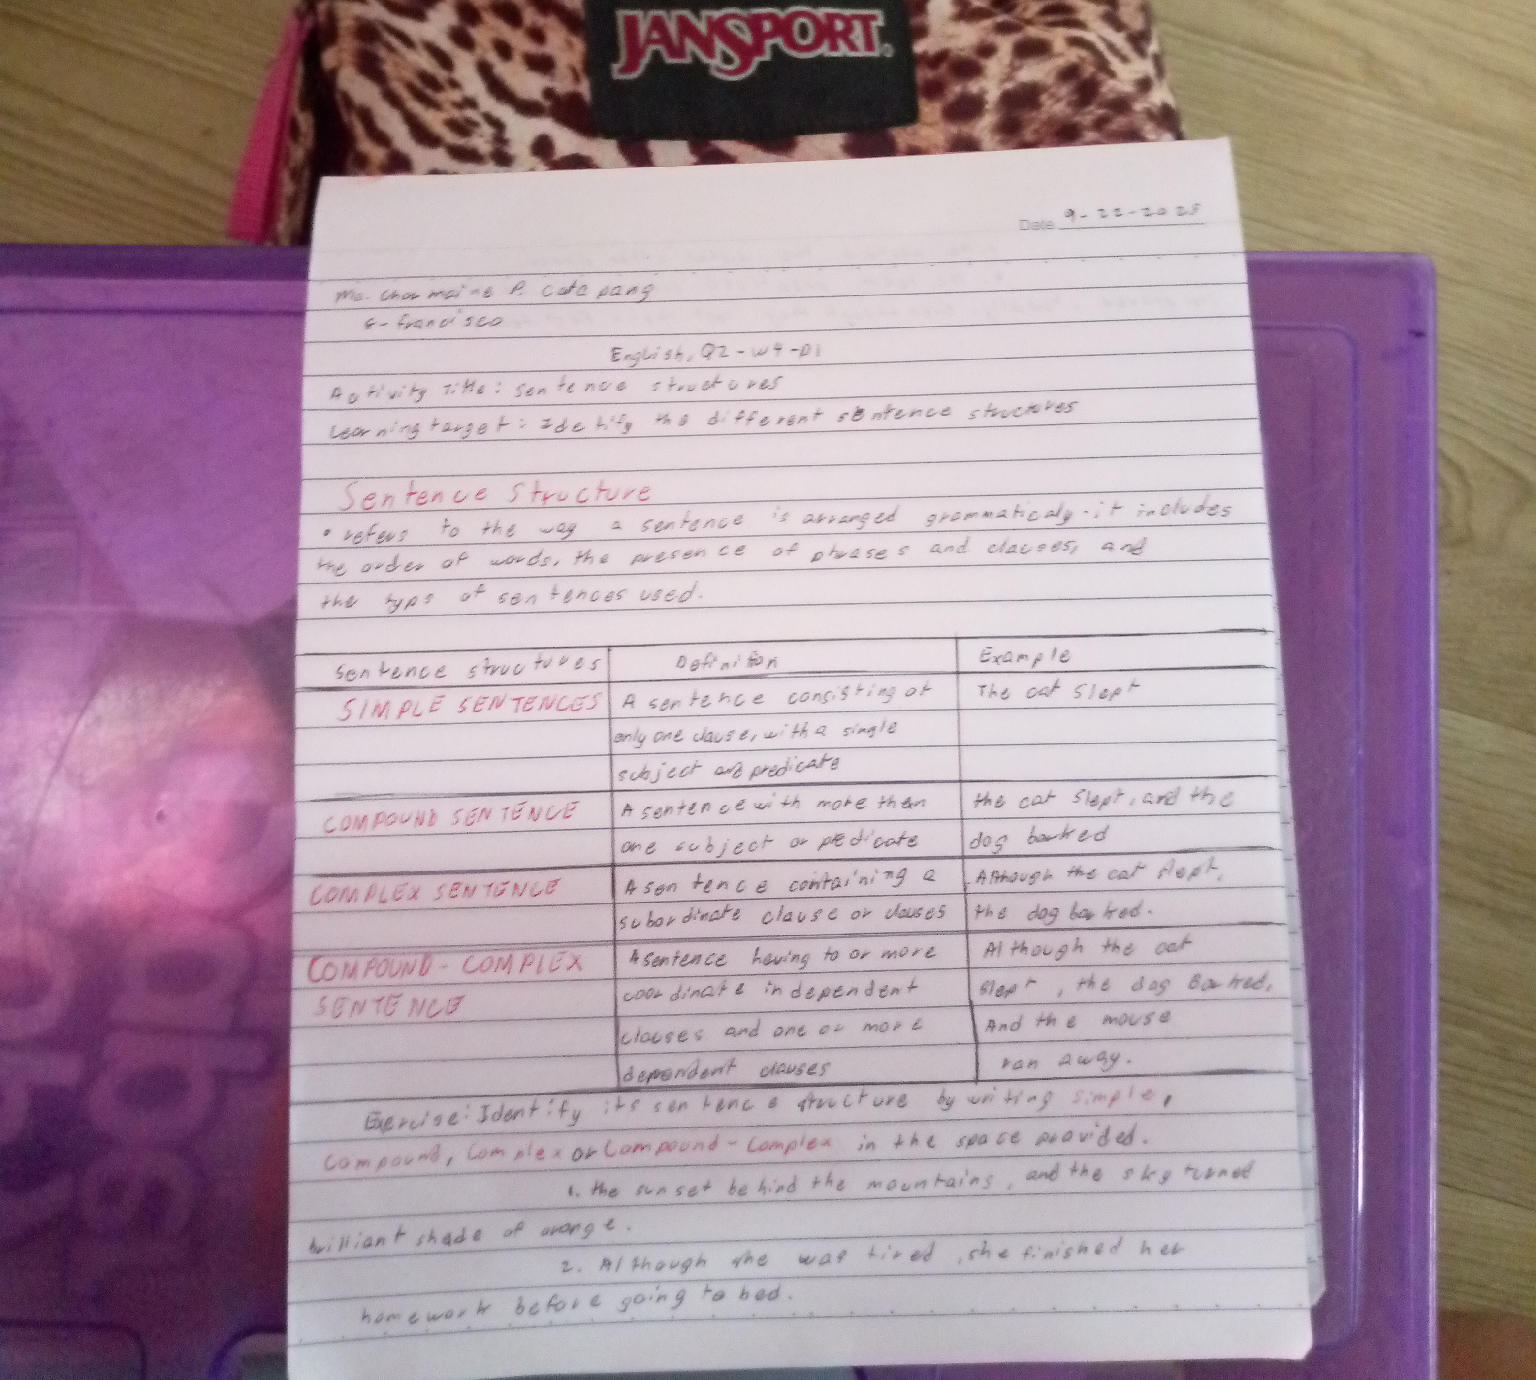 JANSPORT
Date 9-22-2025
Ma. Charmaine P. Catapang
6-francisco
English, Q2-W4-D1
Activity Title: sentence structures
Learning target: Idetify the different sentence structures
Sentence Structure
• refers to the way a sentence is arranged grammaticaly-it includes
the order of words, the presence of phrases and clauses, and
the type of sentences used.
Sentence structures Definition Example
SIMPLE SENTENCES A sentence consisting of The cat slept
only one clause, with a single
subject and predicate
COMPOUND SENTENCE A sentence with more then the cat slept, and the
one subject or predicate dog barked
COMPLEX SENTENCE A sentence containing a Although the cat slept,
subordinate clause or clauses the dog barked.
COMPOUND-COMPLEX A sentence having to or more Although the cat
SENTENCE coordinate independent slept, the dog Barked,
clauses and one or more And the mouse
dependent clauses ran away.
Exercise: Identify its sentence structure by writing simple,
Compound, Complex or Compound-Complex in the space provided.
1. the sun set behind the mountains, and the sky turned
brilliant shade of orange.
2. Although she was tired, she finished her
homework before going to bed.